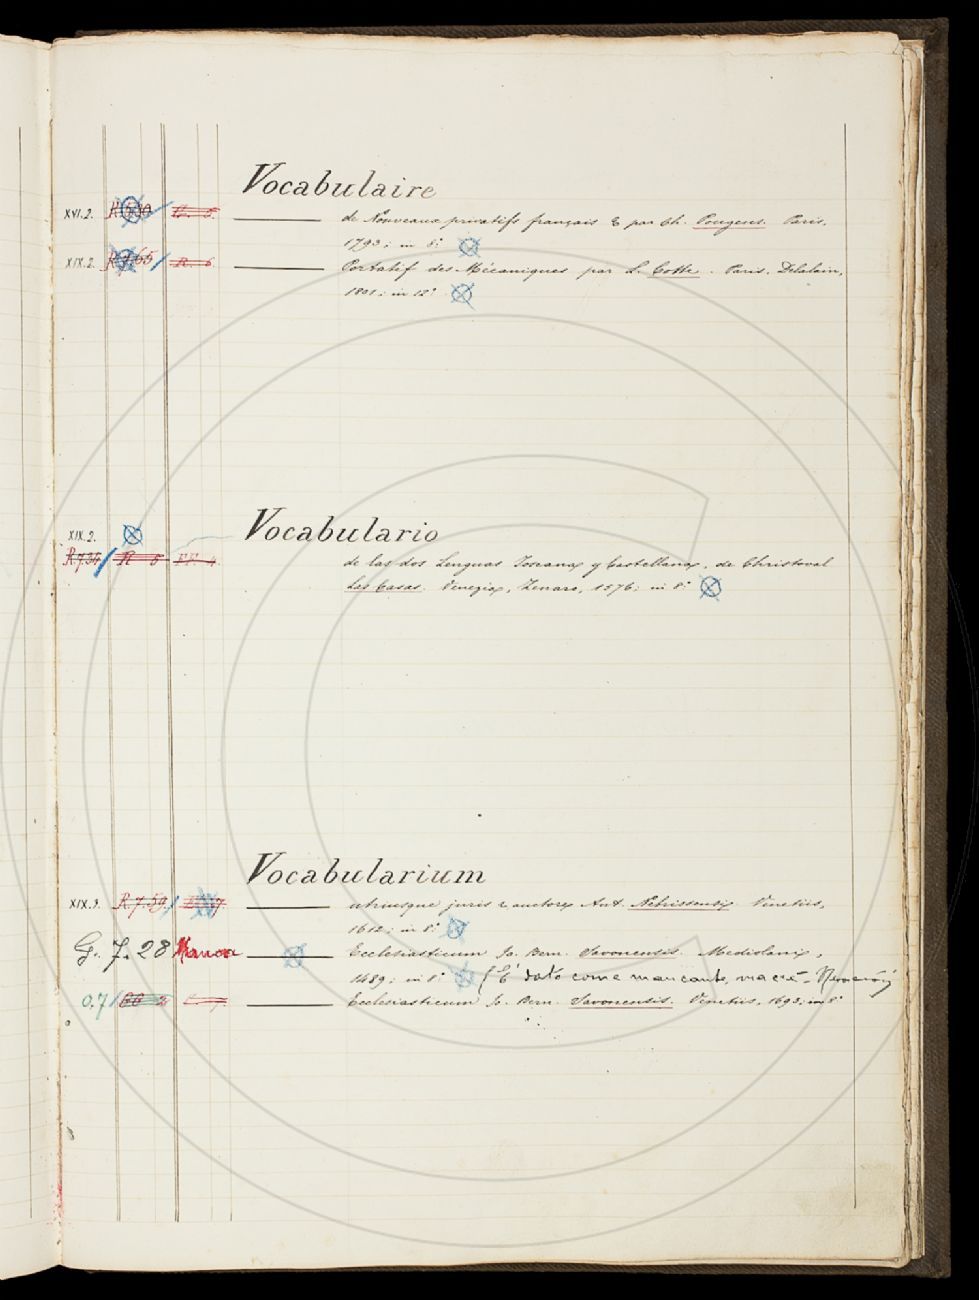 Vocabulaire
XVI.2. de Nouveaux privatifs français & par Ch. Pougens. Paris,
1793; in 8º
XIX.2. R.7.65 R. 6 Portatif des Mécaniques par L. Cotte. Paris. Delalain,
1801; in 12º
Vocabulario
XIX.2.
R.7.34 R 6 de las dos Lenguas Toscana y Castellana, de Christoval
Las Casas. Venezia, Zenaro, 1576; in 8º
Vocabularium
XIX.3. R.7.59. utriusque juris auctore Ant. Nebrissensis Venetiis,
1612; in 8º
G. 7. 28 Manca Ecclesiasticum Jo. Bern. Savonensis. Mediolani,
1489; in 8º (È dato come mancante, ma c'è
0.7 Ecclesiasticum Jo. Bern. Savonensis. Venetiis, 1693; in 8º